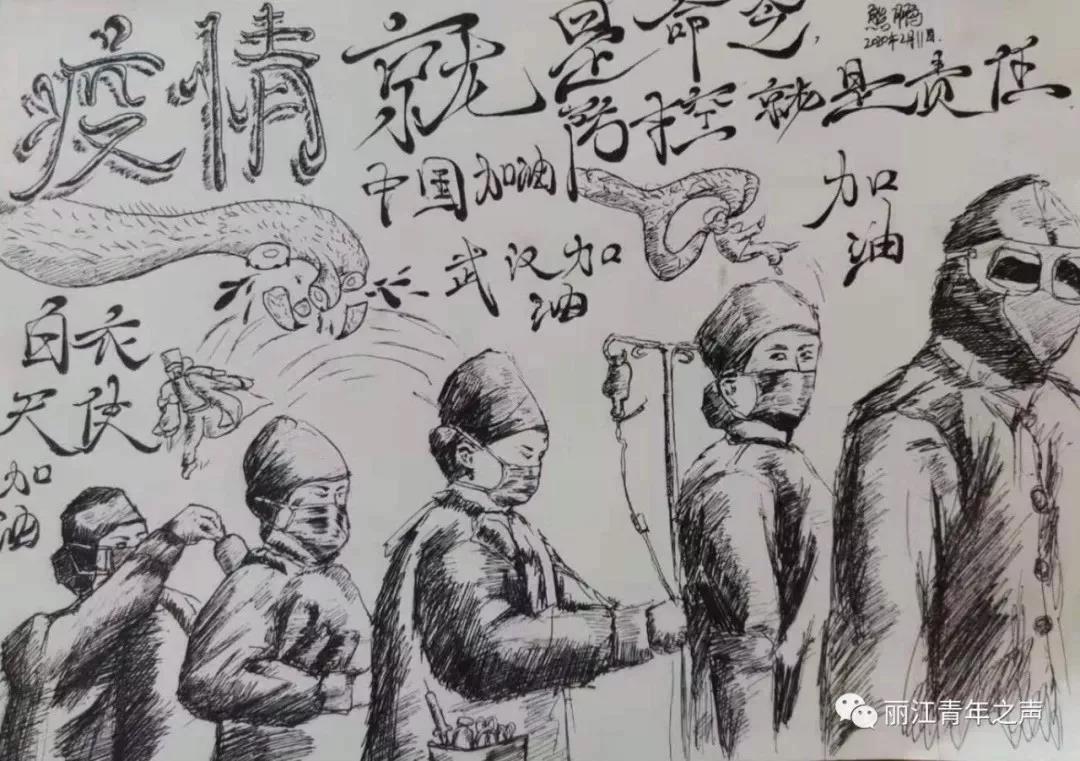 疫情就是命令,
防控就是责任
熊鹏
2020年2月11日.
中国加油
武汉加油
加油
白衣天使
加油
丽江青年之声